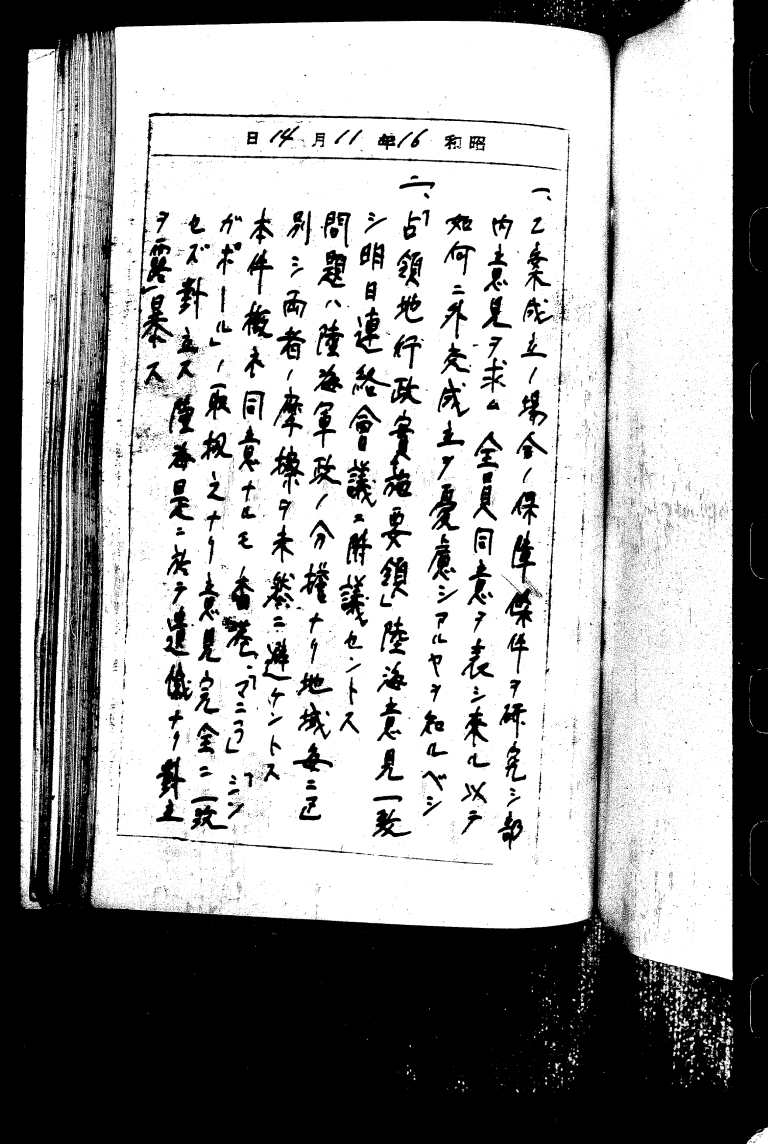 昭和16年11月14日
一、乙案成立ノ場合ノ保障條件ヲ研究シ部
内意見ヲ求ム 全員同意ヲ表シ来ル以テ
如何ニ外交成立ヲ憂慮シアルヤヲ知ルベシ
二、「占領地行政實施要領」陸海意見一致
シ明日連絡會議ニ附議セントス
問題ハ陸海軍政ノ分擔ナリ地域毎ニ区
別シ両者ノ摩擦ヲ未然ニ避ケントス
本件概ネ同意ナルモ香港、「マニラ」「シン
ガポール」ノ取扱之ナリ意見完全ニ一致
セズ對立ス 陸海是ニ於テ遺憾ナリ對立
ヲ露暴ス